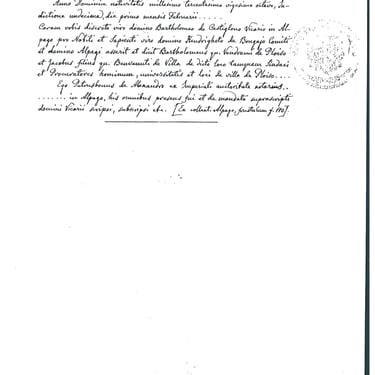 Anno Dominice nativitatis millesimo tercentesimo vigesimo octavo, in-
dictione undecima, die primo mensis Februarii....
Coram vobis discreto viro domino Bartholomeo de Castiglono Vicario in Al-
pago pro Nobili et Sapienti viro domino Hendrigheto de Bongajo Comite
et domino Alpagi asserit et dicit Bartholomeus qu. Vendrami de Plois
et Jacobus filius qu. Benvenuti de Villa de dicto loco tamquam Sindaci
et Procuratores hominum, universitatis et loci de villa de Plois....
Ego Petrusbonus de Alexandro ex Imperiali auctoritate notarius..
........ in Alpago, his omnibus presens fui et de mandato suprascripti
domini Vicarii scripsi, subscripsi etc. [Ex collect. Alpago,